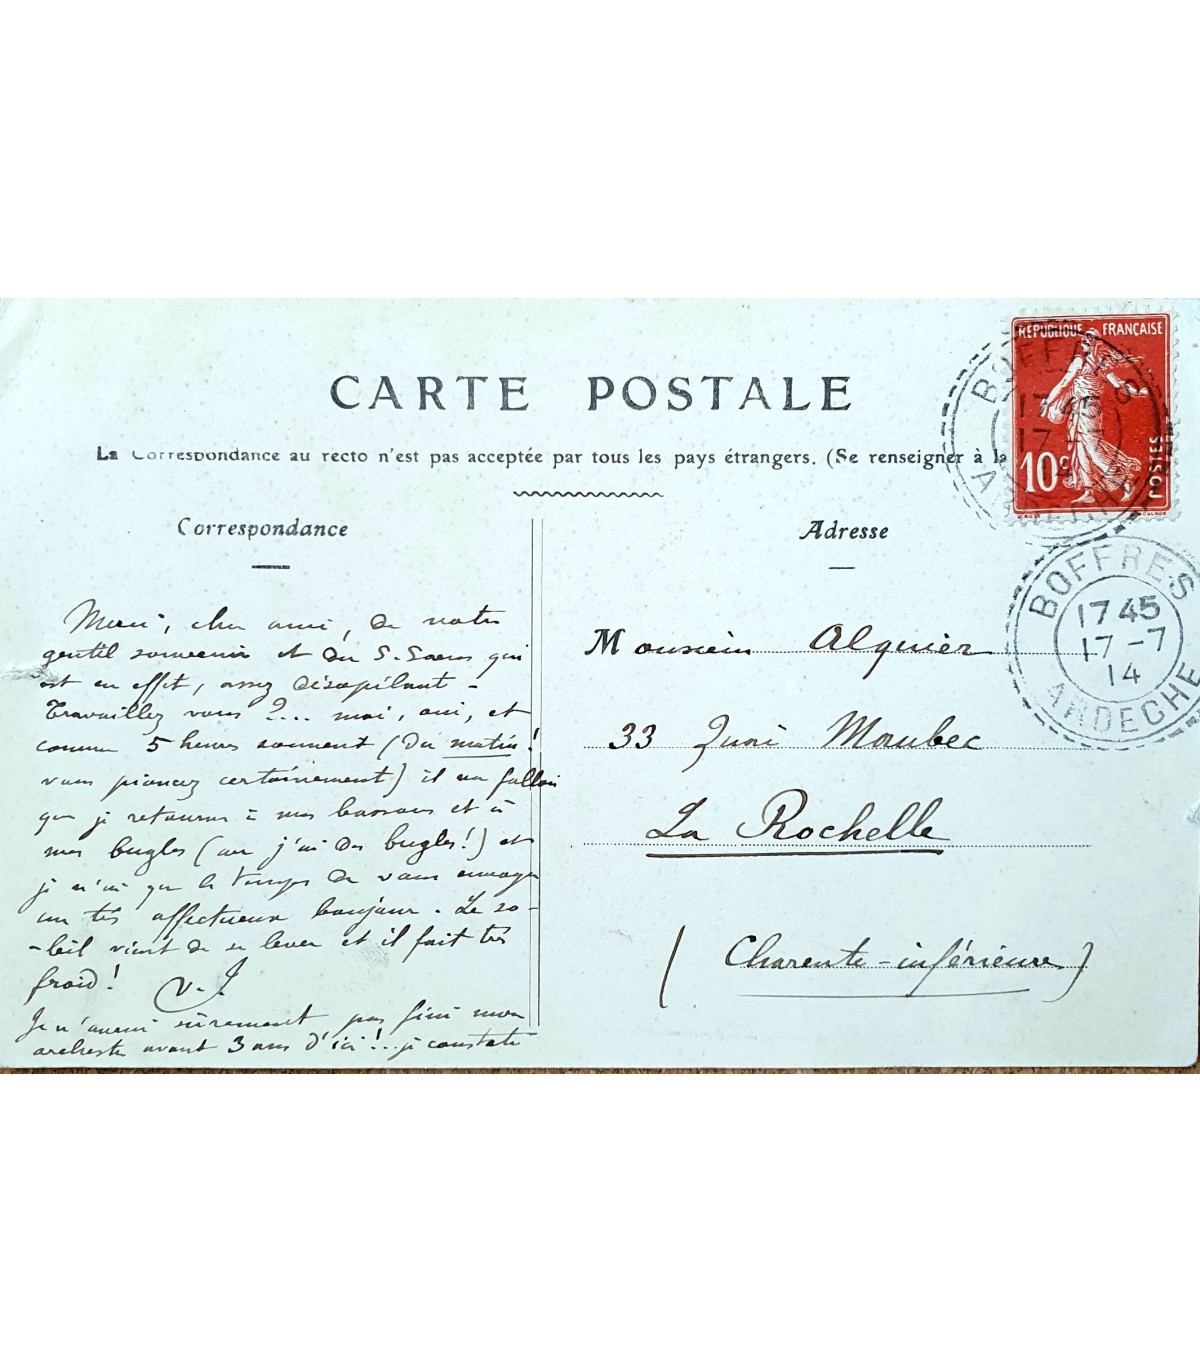 RÉPUBLIQUE FRANÇAISE
10c
POSTES
CARTE POSTALE
La Correspondance au recto n'est pas acceptée par tous les pays étrangers. (Se renseigner à la
Correspondance
Adresse
BOFFRES
17 45
17 -7
14
ARDECHE
BOFFRES
17 45
17 -7
14
ARDECHE
Merci, cher ami, de votre
gentil souvenir et du S-Saens qui
est en effet, assez désopilant -
Travaillez vous ?... moi, oui, et
comme 5 heures sonnent (du matin!
vous pioncez certainement) il va falloir
que je retourne à mes bassons et à
mes bugles (car j'ai des bugles!) et
je n'ai que le temps de vous envoyer
un très affectueux bonjour. Le so-
-leil vient de se lever et il fait très
froid!
V. I.
Je n'aurai sûrement pas fini mon
orchestre avant 3 ans d'ici!... je constate
Monsieur Alquier
33 Quai Maubec
La Rochelle
(Charente-inférieure)